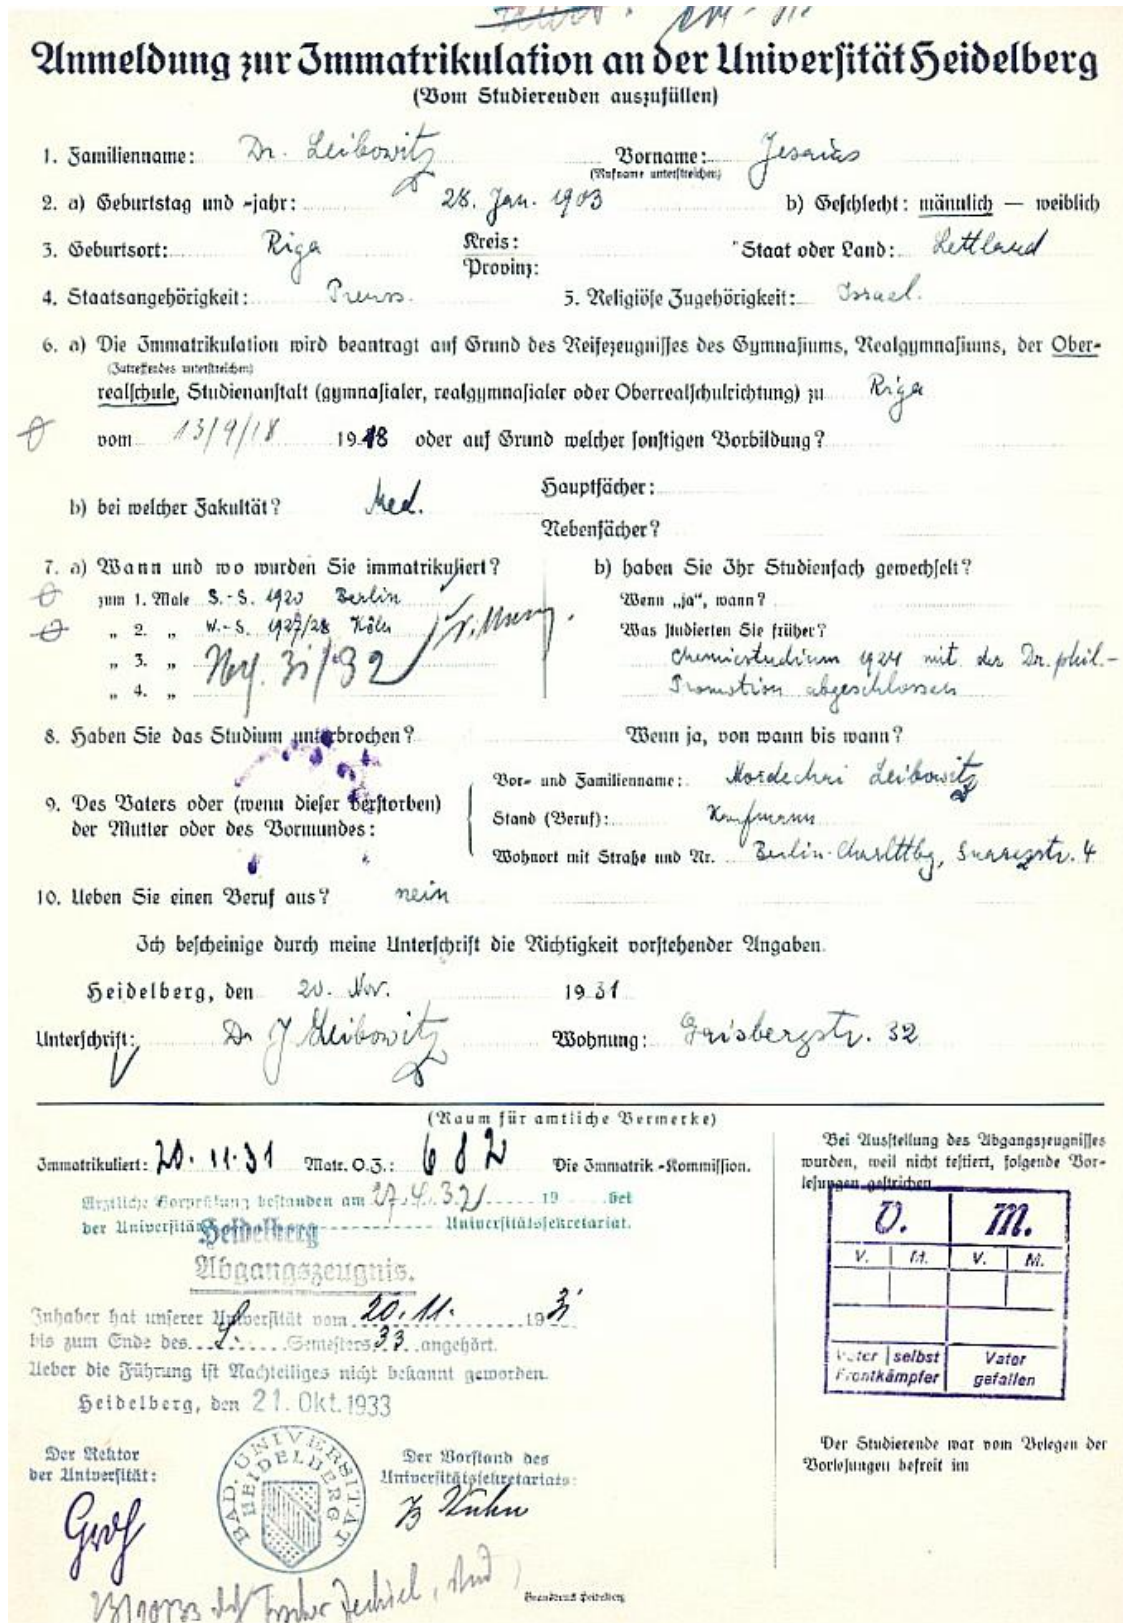 Anmeldung zur Immatrikulation an der Universität Heidelberg
(Vom Studierenden auszufüllen)
1. Familienname: Dr. Leibowitz Vorname: Jesaias
(Rufname unterstreichen)
2. a) Geburtstag und -jahr: 28. Jan. 1903 b) Geschlecht: männlich — weiblich
3. Geburtsort: Riga Kreis: Staat oder Land: Lettland
Provinz:
4. Staatsangehörigkeit: Preuss. 5. Religiöse Zugehörigkeit: Israel.
6. a) Die Immatrikulation wird beantragt auf Grund des Reifezeugnisses des Gymnasiums, Realgymnasiums, der Ober-
(Zutreffendes unterstreichen)
realschule, Studienanstalt (gymnasialer, realgymnasialer oder Oberrealschulrichtung) zu Riga
vom 13/9/18 1918 oder auf Grund welcher sonstigen Vorbildung?
b) bei welcher Fakultät? Med. Hauptfächer:
Nebenfächer?
7. a) Wann und wo wurden Sie immatrikuliert? b) haben Sie Ihr Studienfach gewechselt?
zum 1. Male S.-S. 1920 Berlin Wenn „ja“, wann?
„ 2. „ W.-S. 1927/28 Köln Was studierten Sie früher?
„ 3. „ 31/32 Chemiestudium 1924 mit der Dr. phil.-
„ 4. „ Promotion abgeschlossen
8. Haben Sie das Studium unterbrochen? Wenn ja, von wann bis wann?
Vor- und Familienname: Mordechai Leibowitz
9. Des Vaters oder (wenn dieser verstorben)
der Mutter oder des Vormundes: Stand (Beruf): Kaufmann
Wohnort mit Straße und Nr. Berlin-Charlttbg, Suarezstr. 4
10. Ueben Sie einen Beruf aus? nein
Ich bescheinige durch meine Unterschrift die Richtigkeit vorstehender Angaben.
Heidelberg, den 20. Nov. 1931
Unterschrift: Dr J Leibowitz Wohnung: Gaisbergstr. 32
(Raum für amtliche Vermerke)
Immatrikuliert: 20.11.31 Matr. O.Z.: 682 Die Immatrik.-Kommission.
Ärztliche Vorprüfung bestanden am 27.4.32 19 bei
der Universität Heidelberg Universitätssekretariat.
Abgangszeugnis.
Inhaber hat unserer Universität vom 20.11. 1931
bis zum Ende des S. Semesters 33 angehört.
Ueber die Führung ist Nachteiliges nicht bekannt geworden.
Heidelberg, den 21. Okt. 1933
Der Rektor
der Universität:
Groh
BAD. UNIVERSITÄT
HEIDELBERG
Der Vorstand des
Universitätssekretariats:
Kuhn
Bei Ausstellung des Abgangszeugnisses
wurden, weil nicht testiert, folgende Vor-
lesungen gestrichen
V. M.
V. M. V. M.
Vater selbst Vator
Frontkämpfer gefallen
Der Studierende war vom Belegen der
Vorlesungen befreit im
Brandruck Heidelberg